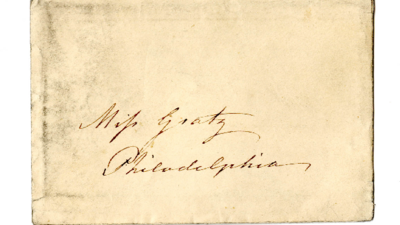 Miſs Gratz
Philadelphia